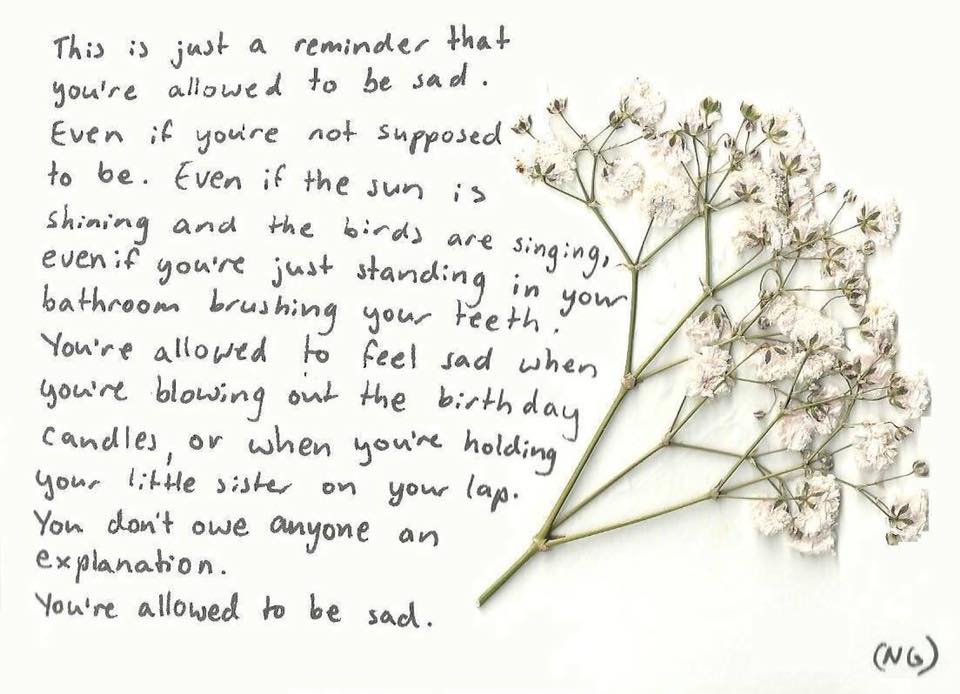 This is just a reminder that
you're allowed to be sad.
Even if you're not supposed
to be. Even if the sun is
shining and the birds are singing,
even if you're just standing in your
bathroom brushing your teeth.
You're allowed to feel sad when
you're blowing out the birthday
candles, or when you're holding
your little sister on your lap.
You don't owe anyone an
explanation.
You're allowed to be sad.
(NG)